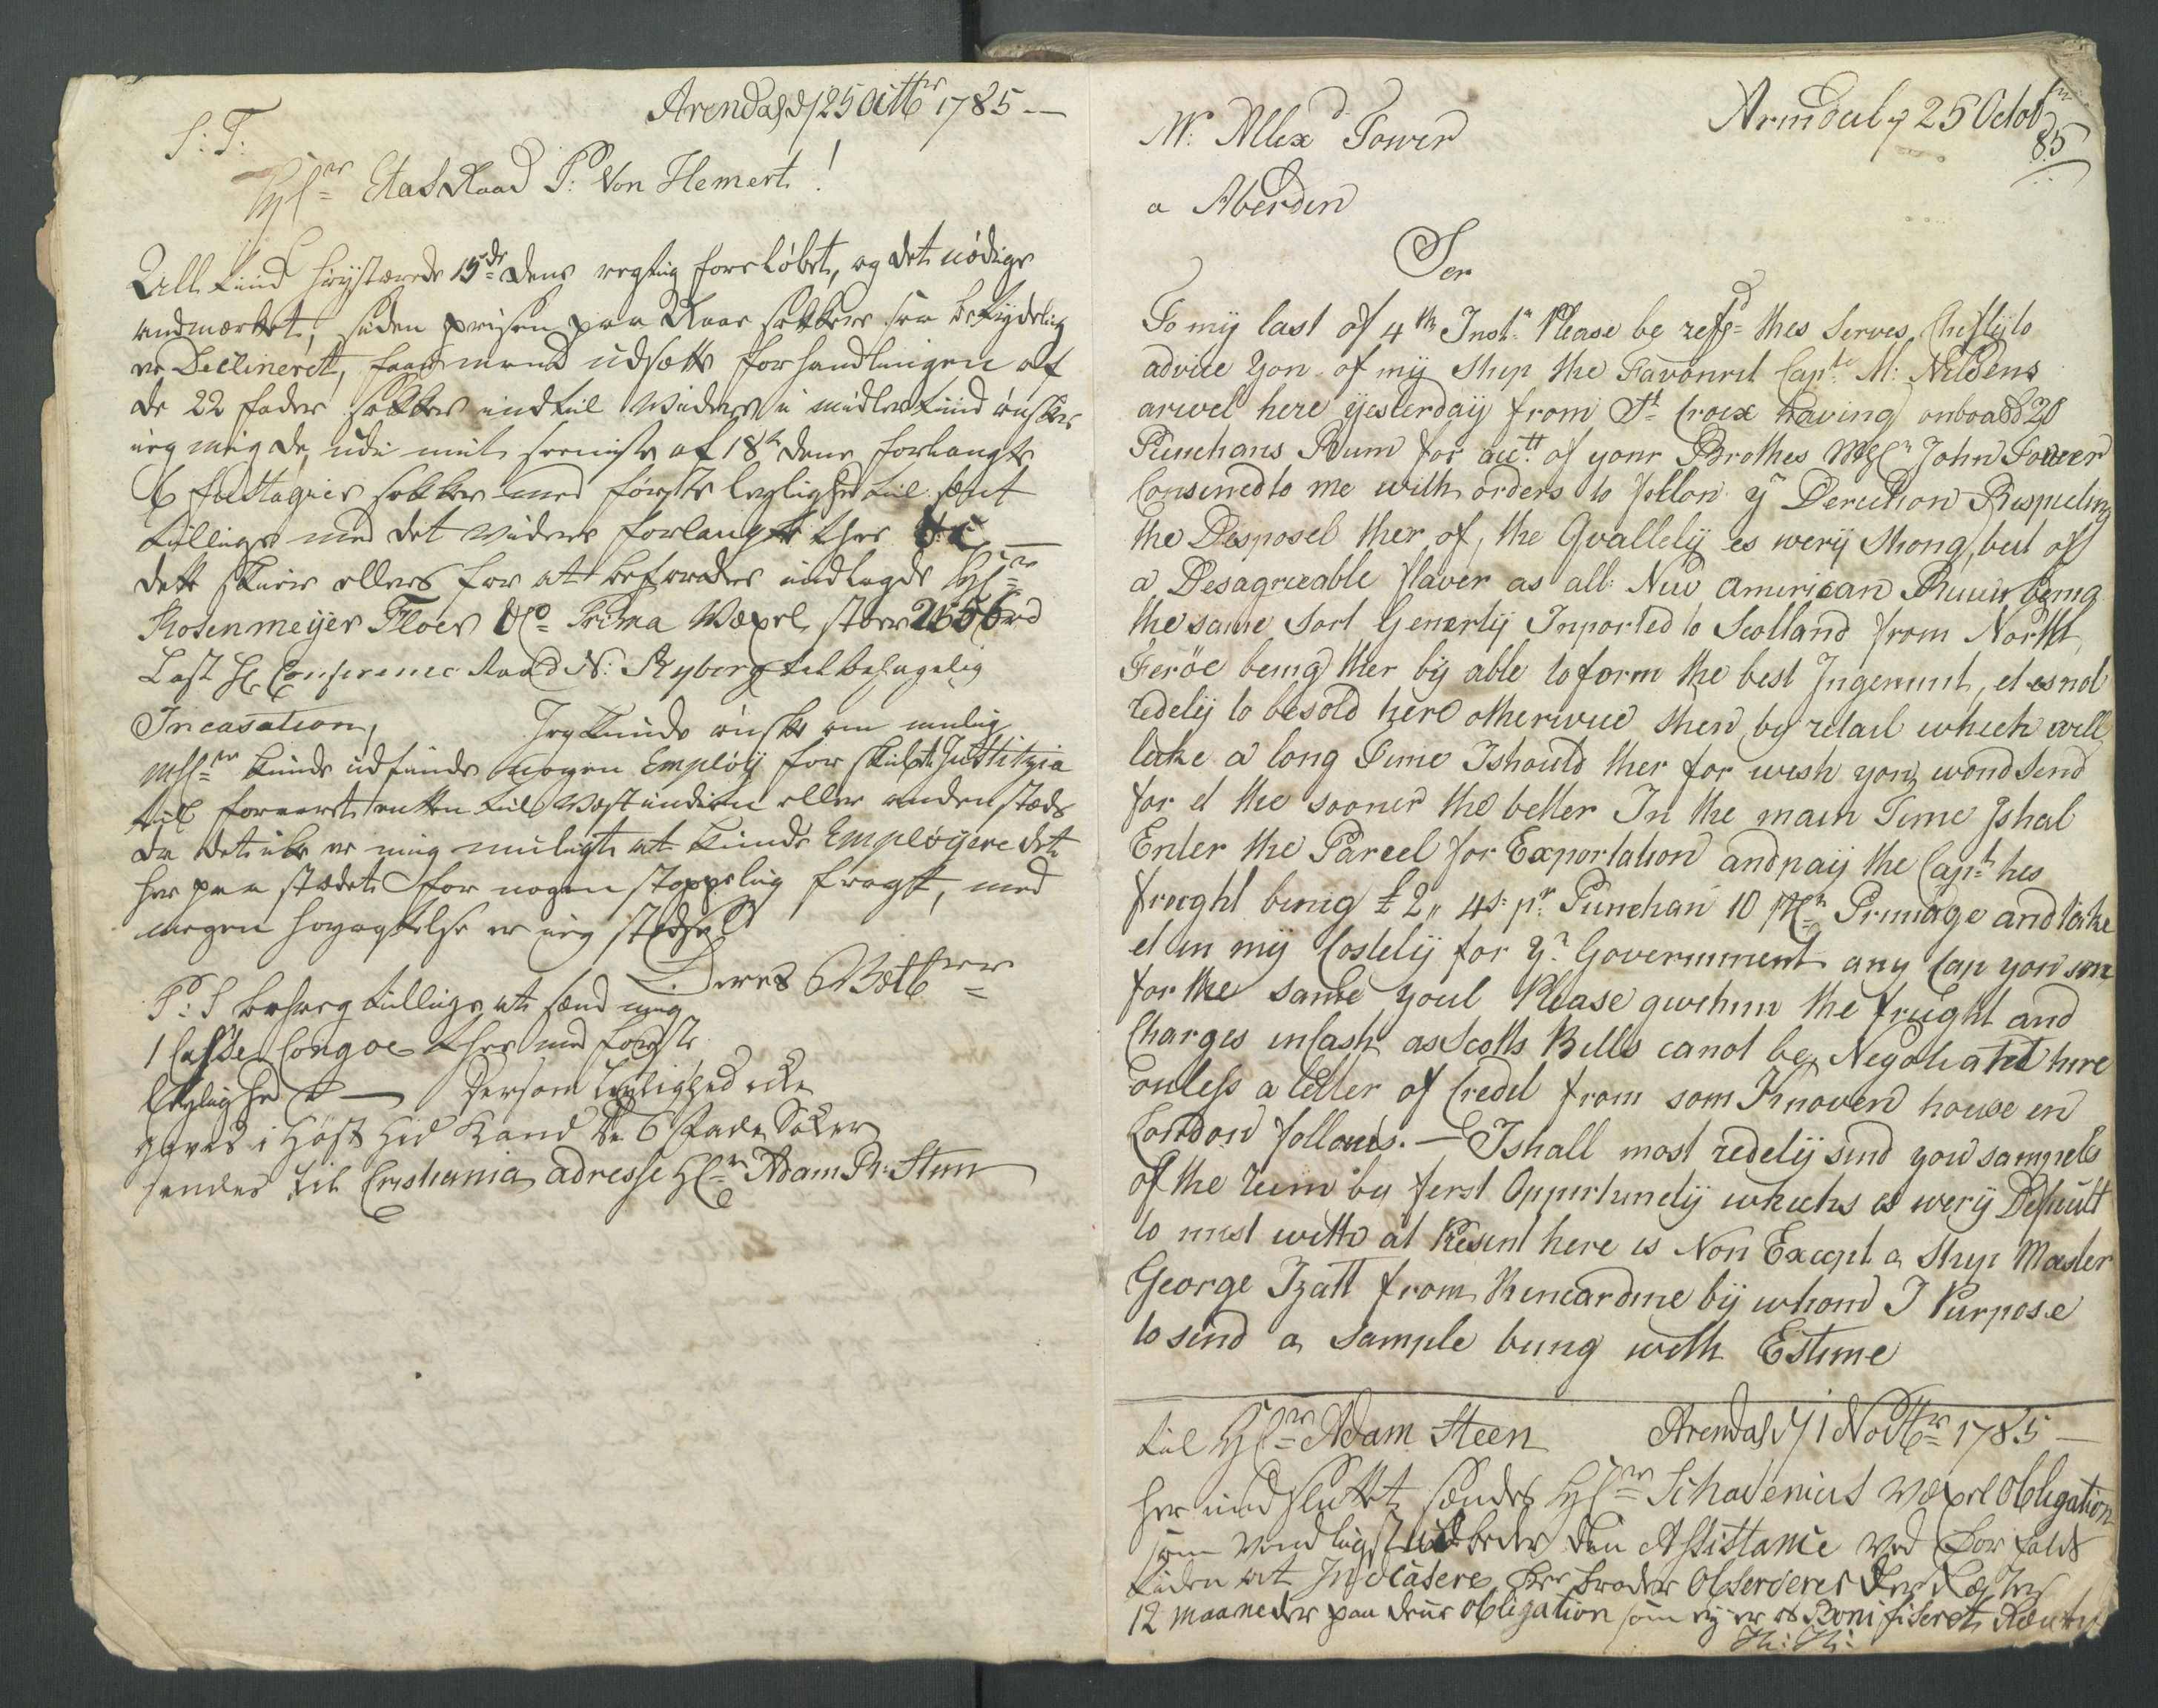 Arendal d/ 25 Octbr 1785 —
S: T:
Hr EtatsRaad P: Von Hemert!
All tiid høystærede 15de dens rigtig forsløbet, og det nødige
andmærket, siden prisen paa Raae sokker saa betydelig
er Declineret, faar mand udsætte forhandlingen af
de 22 fader sokker indtil Widere, i midlertiid ønsker
ieg mig de, udi mit seeniste af 18de dens forlangte
6 fustagier sokker med første leylighed til sent
tillige med det widere forlangte Thee &c —
dette skriver ellers for at befordre indlagde Hr
Rosenmeyer Floer & Co Prima Wexel stoer 2556 rd
Last Hr Conference Raad N: Ryberg til behagelig
Incasation, Jeg kunde ønske om mulig
Hr kunde udfinde nogen Employ for skibet Justitzia
til foraaret enten til Westindien eller andenstæds
da det ikke er mig muligt at kunde Employere det
her paa stædet for nogen stoppelig fragt, med
megen høyagtelse er ieg stedse
Deres
P: S behag tillige at send mig
1 Casse Congoe Thee med første
leylighed — dersom leylighed icke
gives i Høst hid Kand de 6 fade Soker
sendes til Cristiania adresse Hr Adam Pr: Steen
Arendal y 25 Octobr
85
Mr. Allexd Tower
a Aberden
Ser
To my last of 4th Inst: Please be reffd thes Serves Cheflij to
advice You of mij Ship the Favourit Capt: M: Nildens
arivel here ijesterdaij from St Croix having onboard 20
Punchans Rum for acctt of your Brother Mr John Tower
Consined to me with orders to follow yr Derection Respecting
the Disposel ther of, the Qvallelij es werij Strong, but of
a Desagreeable flaver as all New american Rum being
the same Sort Generlij Inported to Scolland from North
Feröe being ther bij able to form the best Jugement, et es not
redelij to be sold here otherwice then by retail which will
take a long Time I should ther for wish you woud Send
for et the sooner the better In the main Time I shal
Enter the Parcel for Exportation and paij the Capt: hes
freight being £ 2,, 4 s: pr. Punchan 10 pCt Primage and take
et in mij Costelij for yr Government any Cap you sen
for the same youl Please give him the freight and
Charges in Cash as Scotts Bills canot be Negotiated here
onless a letter of Credet from som Knoven house en
London follows. — I shall most redelij send you sampels
of the rum by ferst Oppertunelij whichs is werij Defecult
to meet with at Present here is Non Except a Ship Master
George Izatt from Kincardine bij whom I Purpose
to send a Sample being with Esteme
til Hr Adam Steen Arendal d/ 1 Novbr 1785 —
her indsluttet sendes Hr Schavenius Wexel Obligation
som Vendligst udbeder den Assistance ved forfalds
tiden at Indcasere, observeres
12 maaneder paa denne obligation som ey er bonifiseret Rente